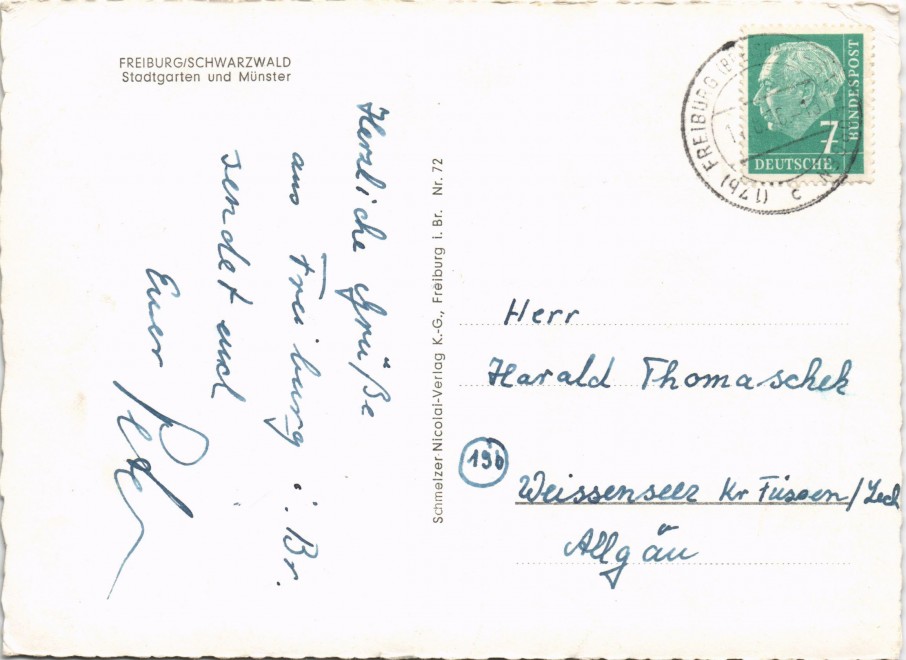 FREIBURG/SCHWARZWALD
Stadtgarten und Münster
Herzliche Grüße
aus Freiburg i. Br.
sendet euch
Euer Peter
Schmelzer-Nicolai-Verlag K.-G., Freiburg i. Br. Nr. 72
(17b) FREIBURG
7
DEUTSCHE
BUNDESPOST
Herr
Harald Thomaschek
19b
Weissensee Kr Füssen/Lech
Allgäu